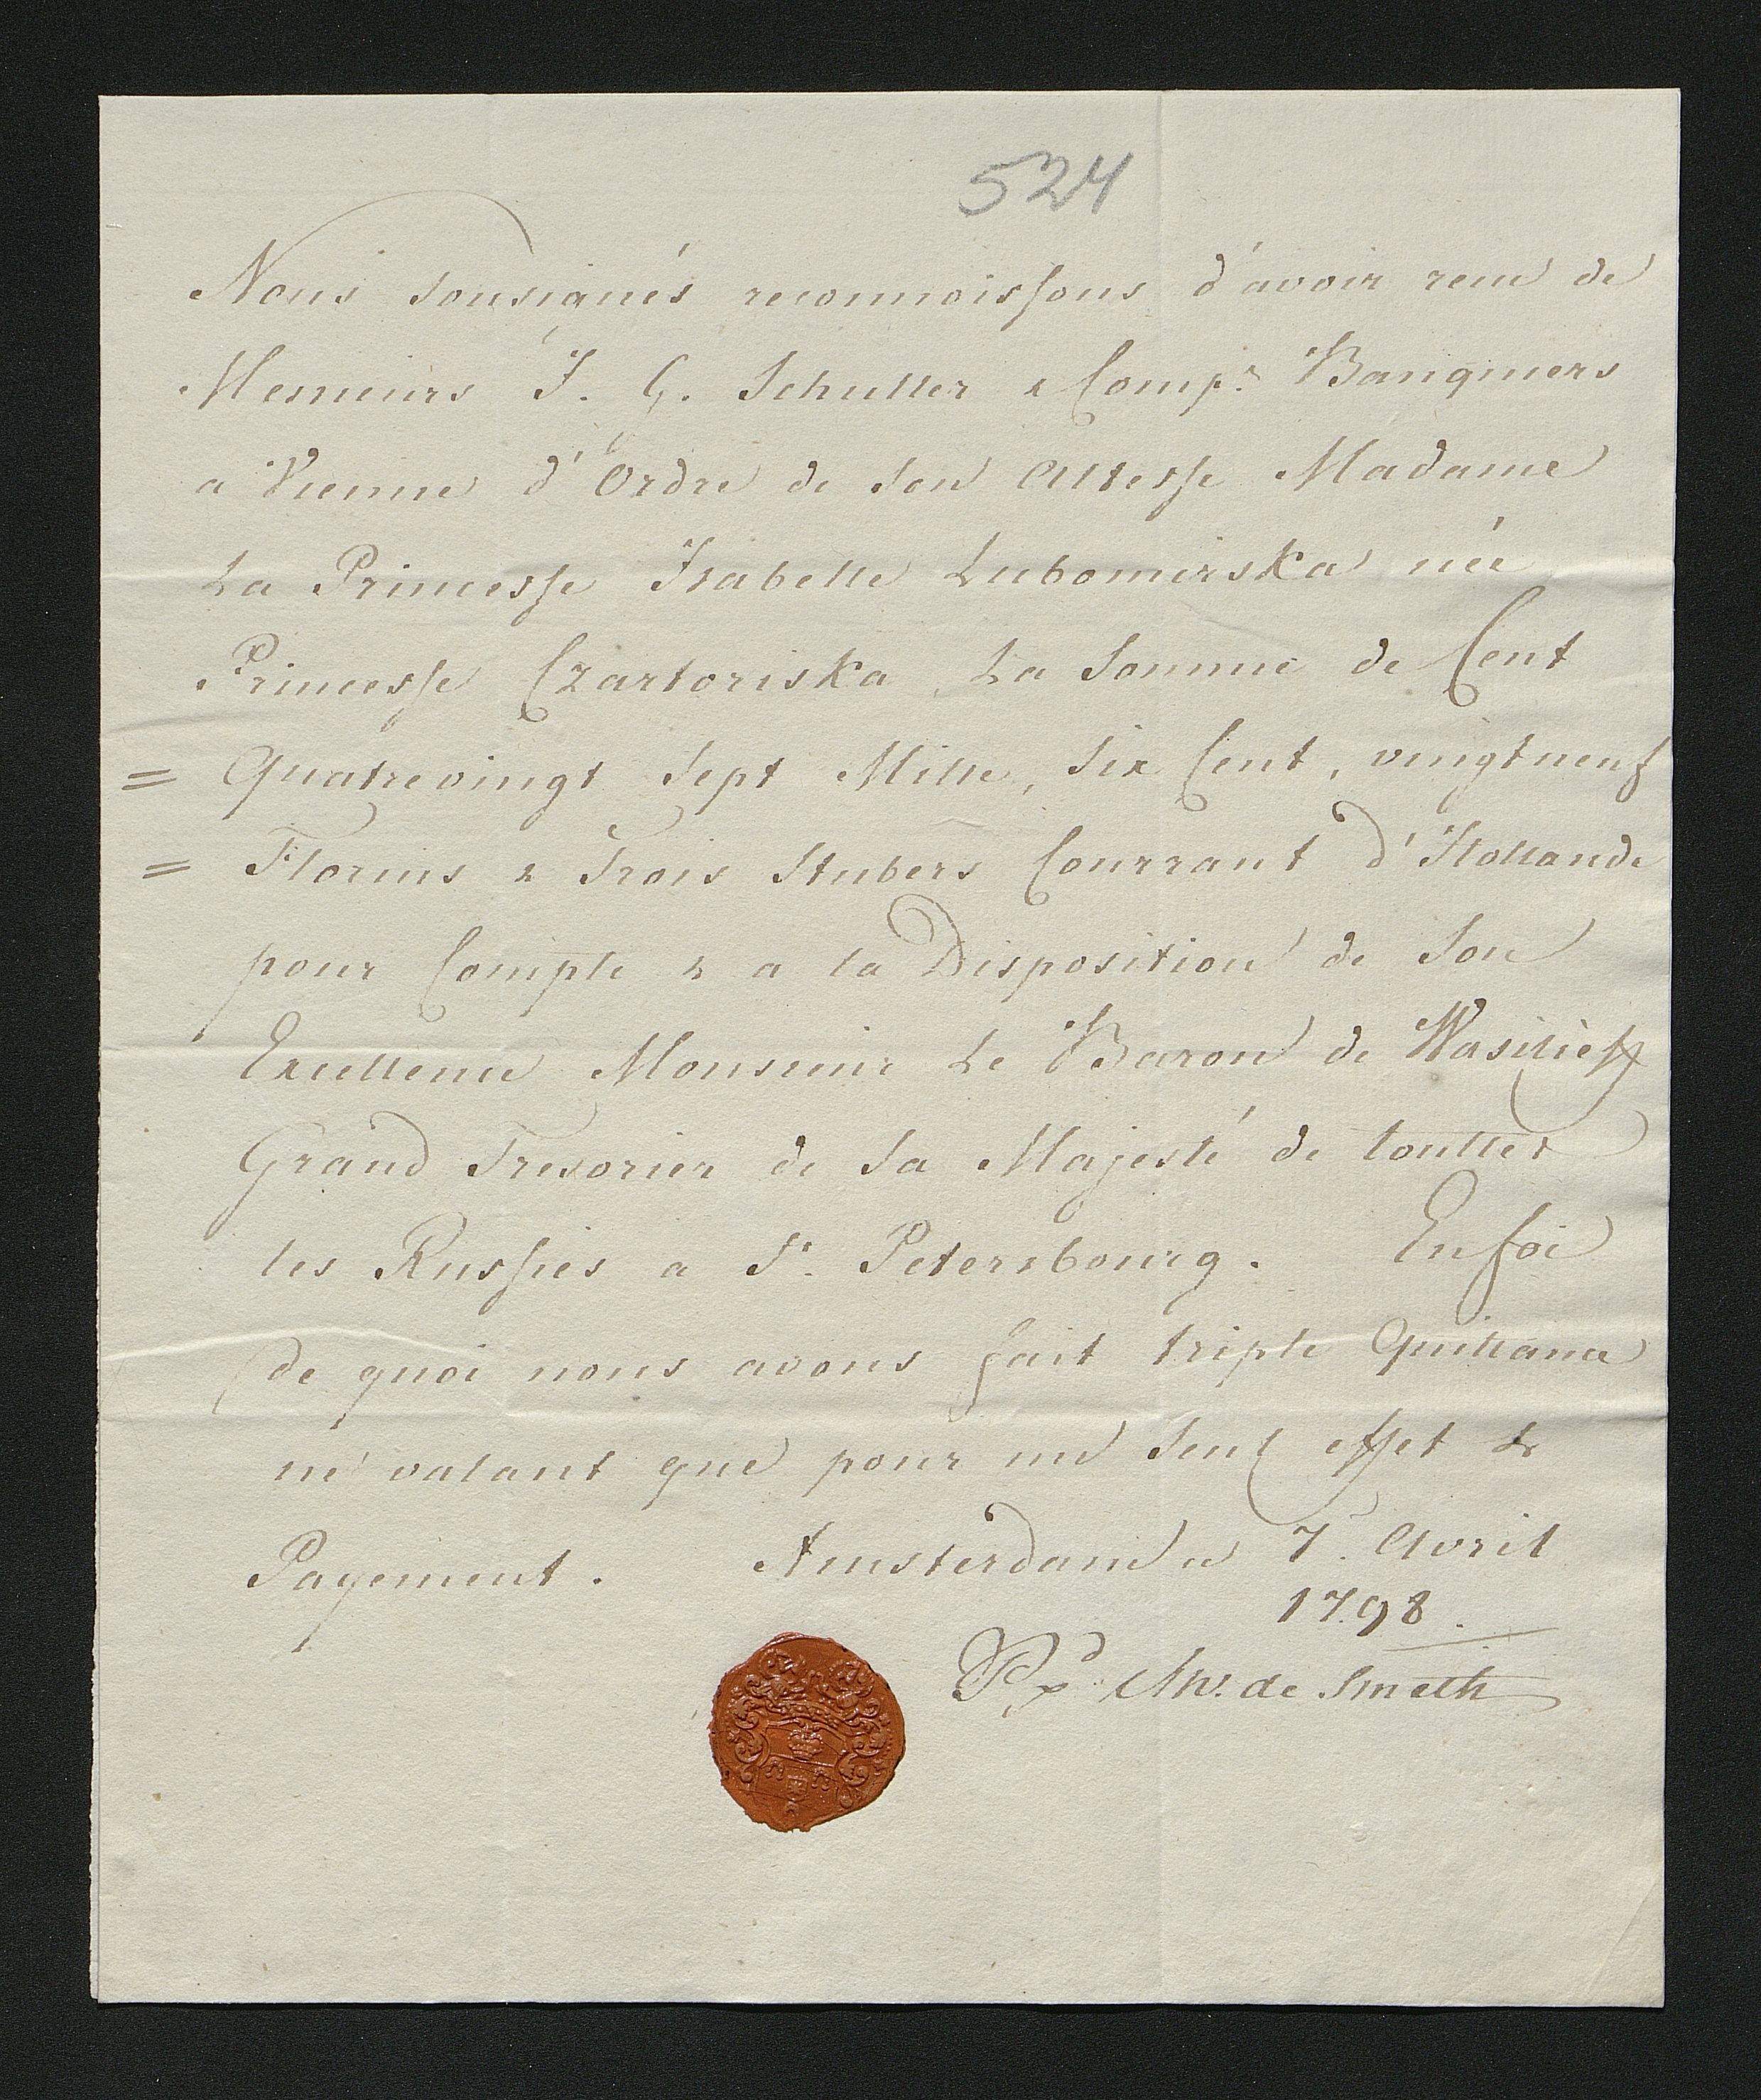 524
Nous sousignés reconnoissons d'avoir recu de
Messieurs J. G. Schuller & Compe. Banquiers
a Vienne d'Ordre de Son Altesse Madame
La Princesse Isabelle Lubomirska née
Princesse Czartoriska La Somme de Cent
= Quatrevingt Sept Mille, Six Cent, vingtneuf
= Florins & Trois Stubers Courrant d'Hollande
pour Compte & a la Disposition de Son
Excellence Monsieur Le Baron de Wasilieff
Grand Tresorier de Sa Majesté de touttes
les Russies a St. Petersbourg. En foi
de quoi nous avons fait triple Quittance
ne valant que pour un Seul effet &
Payement. Amsterdam ce 7. Avril
1798.
de Smeth